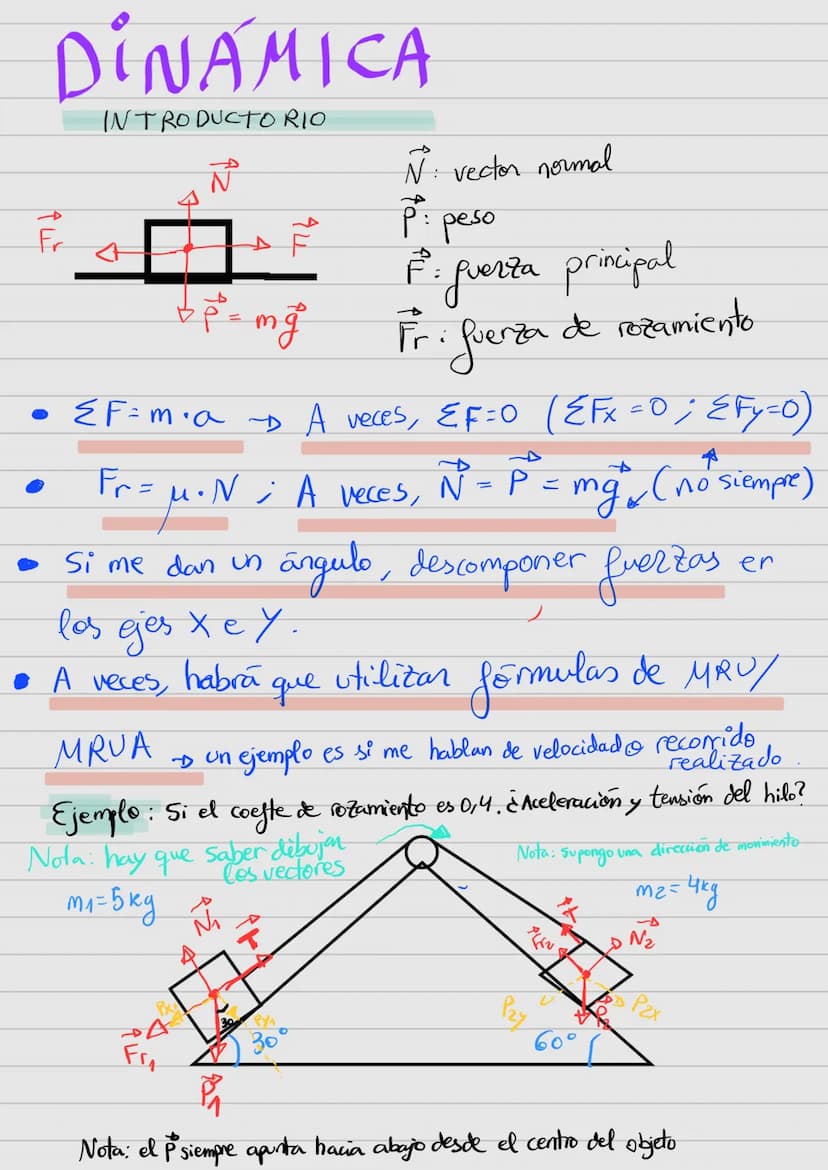 DINÁMICA
INTRODUCTORIO
N
Fr
F
P = mg
N: vector normal
P: peso
F: fuerza principal
Fr: fuerza de rozamiento
• ΣF=m·a → A veces, ΣF=0 (ΣFx=0; ΣFy=0)
• Fr=μ·N; A veces, N = P = mg (no siempre)
• Si me dan un ángulo, descomponer fuerzas en
los ejes X e Y.
• A veces, habrá que utilizar fórmulas de MRU/
MRUA → un ejemplo es si me hablan de velocidad o recorrido
realizado.
Ejemplo: Si el coefte de rozamiento es 0,4. ¿Aceleración y tensión del hilo?
Nota: hay que saber dibujar
los vectores
Nota: supongo una dirección de movimiento
m1=5kg
m2=4kg
N1
T
T
Fr2
N2
Px1
Py1
30
30°
Fr1
P1
P2y
P2
P2x
60°
Nota: el P siempre apunta hacia abajo desde el centro del objeto